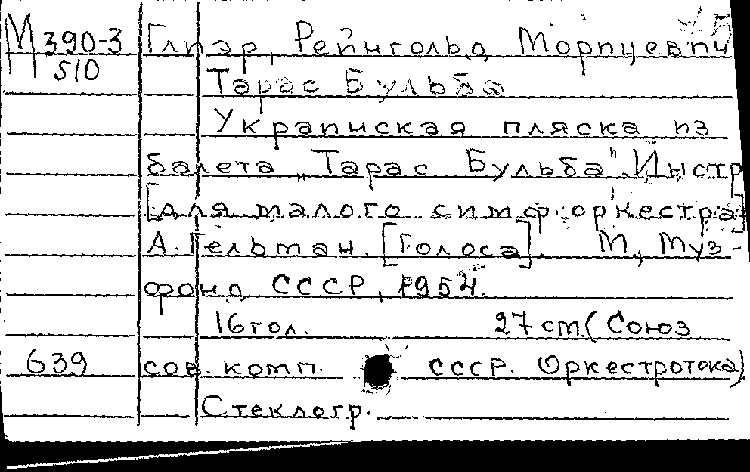 М 390-3 Глиэр, Рейнгольд Морицевич
510 Тарас Бульба
Украинская пляска из
балета "Тарас Бульба". Инстр.
[для малого симф. оркестра]
А. Гельман. [Голоса]. М., Муз-
фонд СССР, 1954.
16 гол. 27 cm (Союз
639 сов. комп. СССР. Оркестротека)
Стеклогр.